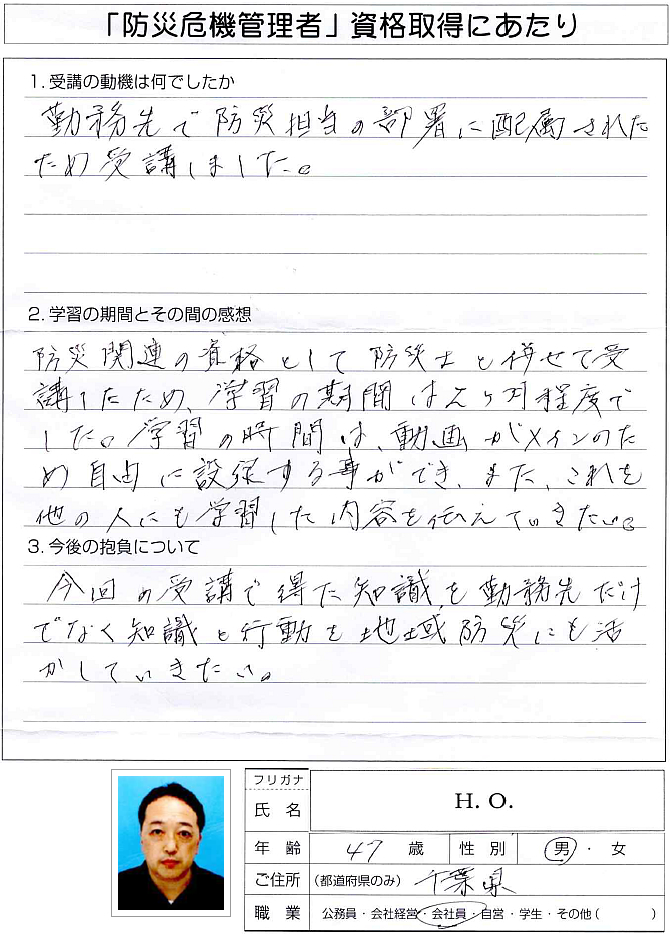 「防災危機管理者」資格取得にあたり
1. 受講の動機は何でしたか
勤務先で防災担当の部署に配属された
ため受講しました。
2. 学習の期間とその間の感想
防災関連の資格として防災士と併せて受
講したため、学習の期間は2ヶ月程度で
した。学習の時間は、動画がメインのた
め自由に設定する事ができ、また、これを
他の人にも学習した内容を伝えていきたい。
3. 今後の抱負について
今回の受講で得た知識を勤務先だけ
でなく知識と行動を地域防災にも活
かしていきたい。
フリガナ
氏 名 H. O.
年 齢 47 歳 性 別 男 ・ 女
ご住所 (都道府県のみ) 千葉県
職 業 公務員・会社経営・会社員・自営・学生・その他( )